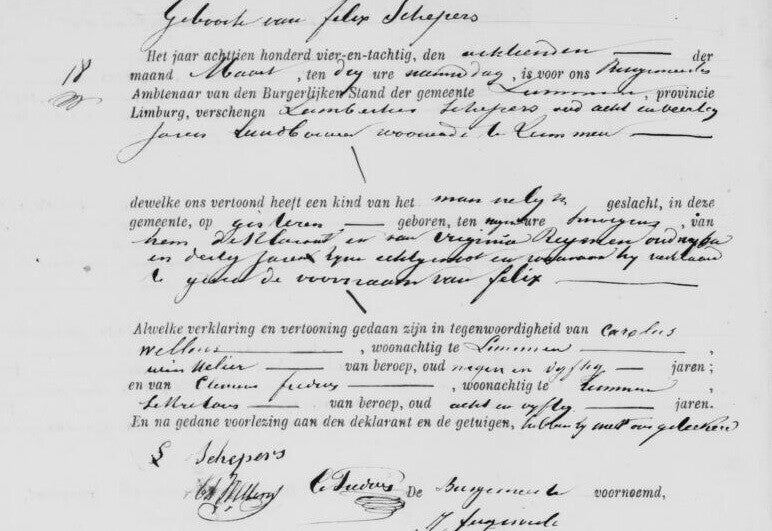 Geboorte van felix Schepers
Het jaar achttien honderd vier-en-tachtig, den achtienden der
18 maand Maart, ten dry ure namiddag, is voor ons Burgemeester
Ambtenaar van den Burgerlijken Stand der gemeente Lummen, provincie
Limburg, verschenen Lambertus Schepers oud acht en veertig
jaren Landbouwer woonende te Lummen
dewelke ons vertoond heeft een kind van het mannelyk geslacht, in deze
gemeente, op gisteren geboren, ten ure smorgens, van
hem deklarant en van Virginia Reynen oud
en dertig jaren zyne echtgenoot en waaraan hy verklaard
te geven de voornaam van felix
Alwelke verklaring en vertooning gedaan zijn in tegenwoordigheid van Carolus
Willems, woonachtig te Lummen,
winkelier van beroep, oud negen en vyftig jaren;
en van Clemens, woonachtig te Lummen,
sekretaris van beroep, oud acht en vyftig jaren.
En na gedane voorlezing aan den deklarant en de getuigen, hebben zy met ons geteekend
L Schepers
De Burgemeester voornoemd,